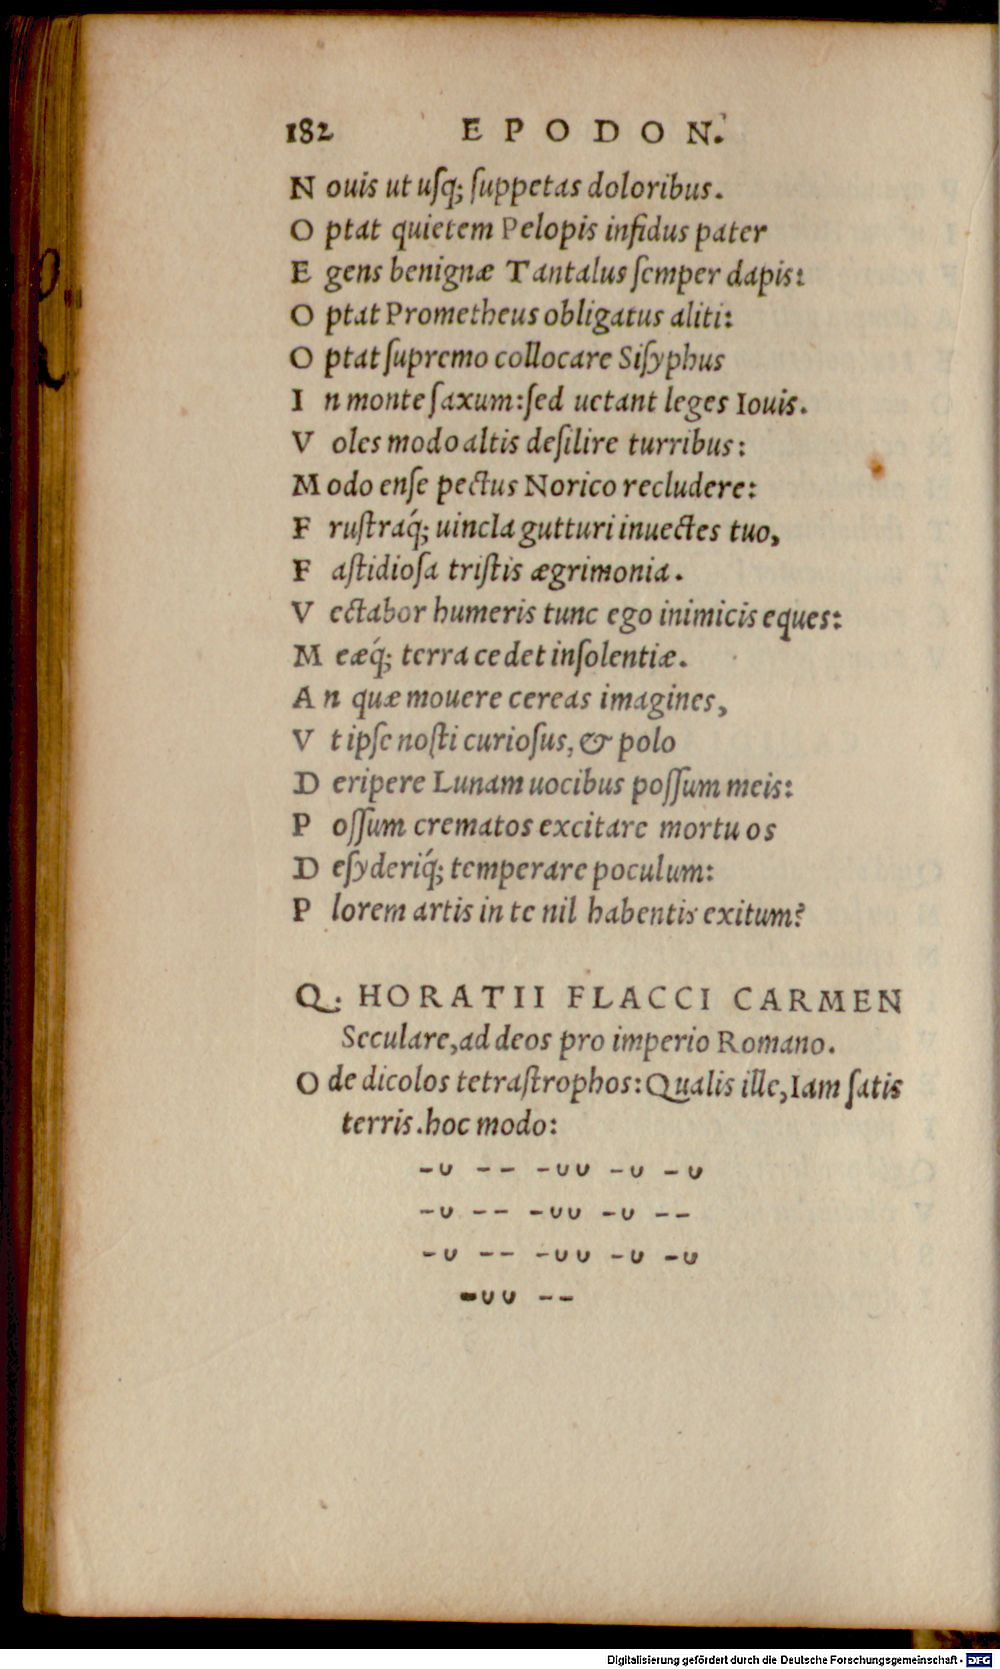 182 EPODON.
N ouis ut uſq; ſuppetas doloribus.
O ptat quietem Pelopis infidus pater
E gens benignæ Tantalus ſemper dapis:
O ptat Prometheus obligatus aliti:
O ptat ſupremo collocare Siſyphus
I n monte ſaxum: ſed uetant leges Iouis.
V oles modo altis deſilire turribus:
M odo enſe pectus Norico recludere:
F ruſtraq́; uincla gutturi inuectes tuo,
F aſtidioſa triſtis ægrimonia.
V ectabor humeris tunc ego inimicis eques:
M eæq́; terra cedet inſolentiæ.
A n quæ mouere cereas imagines,
V t ipſe noſti curioſus, & polo
D eripere Lunam uocibus poſſum meis:
P oſſum crematos excitare mortuos
D eſyderiq́; temperare poculum:
P lorem artis in te nil habentis exitum?
Q. HORATII FLACCI CARMEN
Seculare, ad deos pro imperio Romano.
O de dicolos tetraſtrophos: Qualis ille, Iam ſatis
terris. hoc modo:
-υ -- -υυ -υ -υ
-υ -- -υυ -υ --
-υ -- -υυ -υ -υ
-υυ --
Digitalisierung gefördert durch die Deutsche Forschungsgemeinschaft - DFG